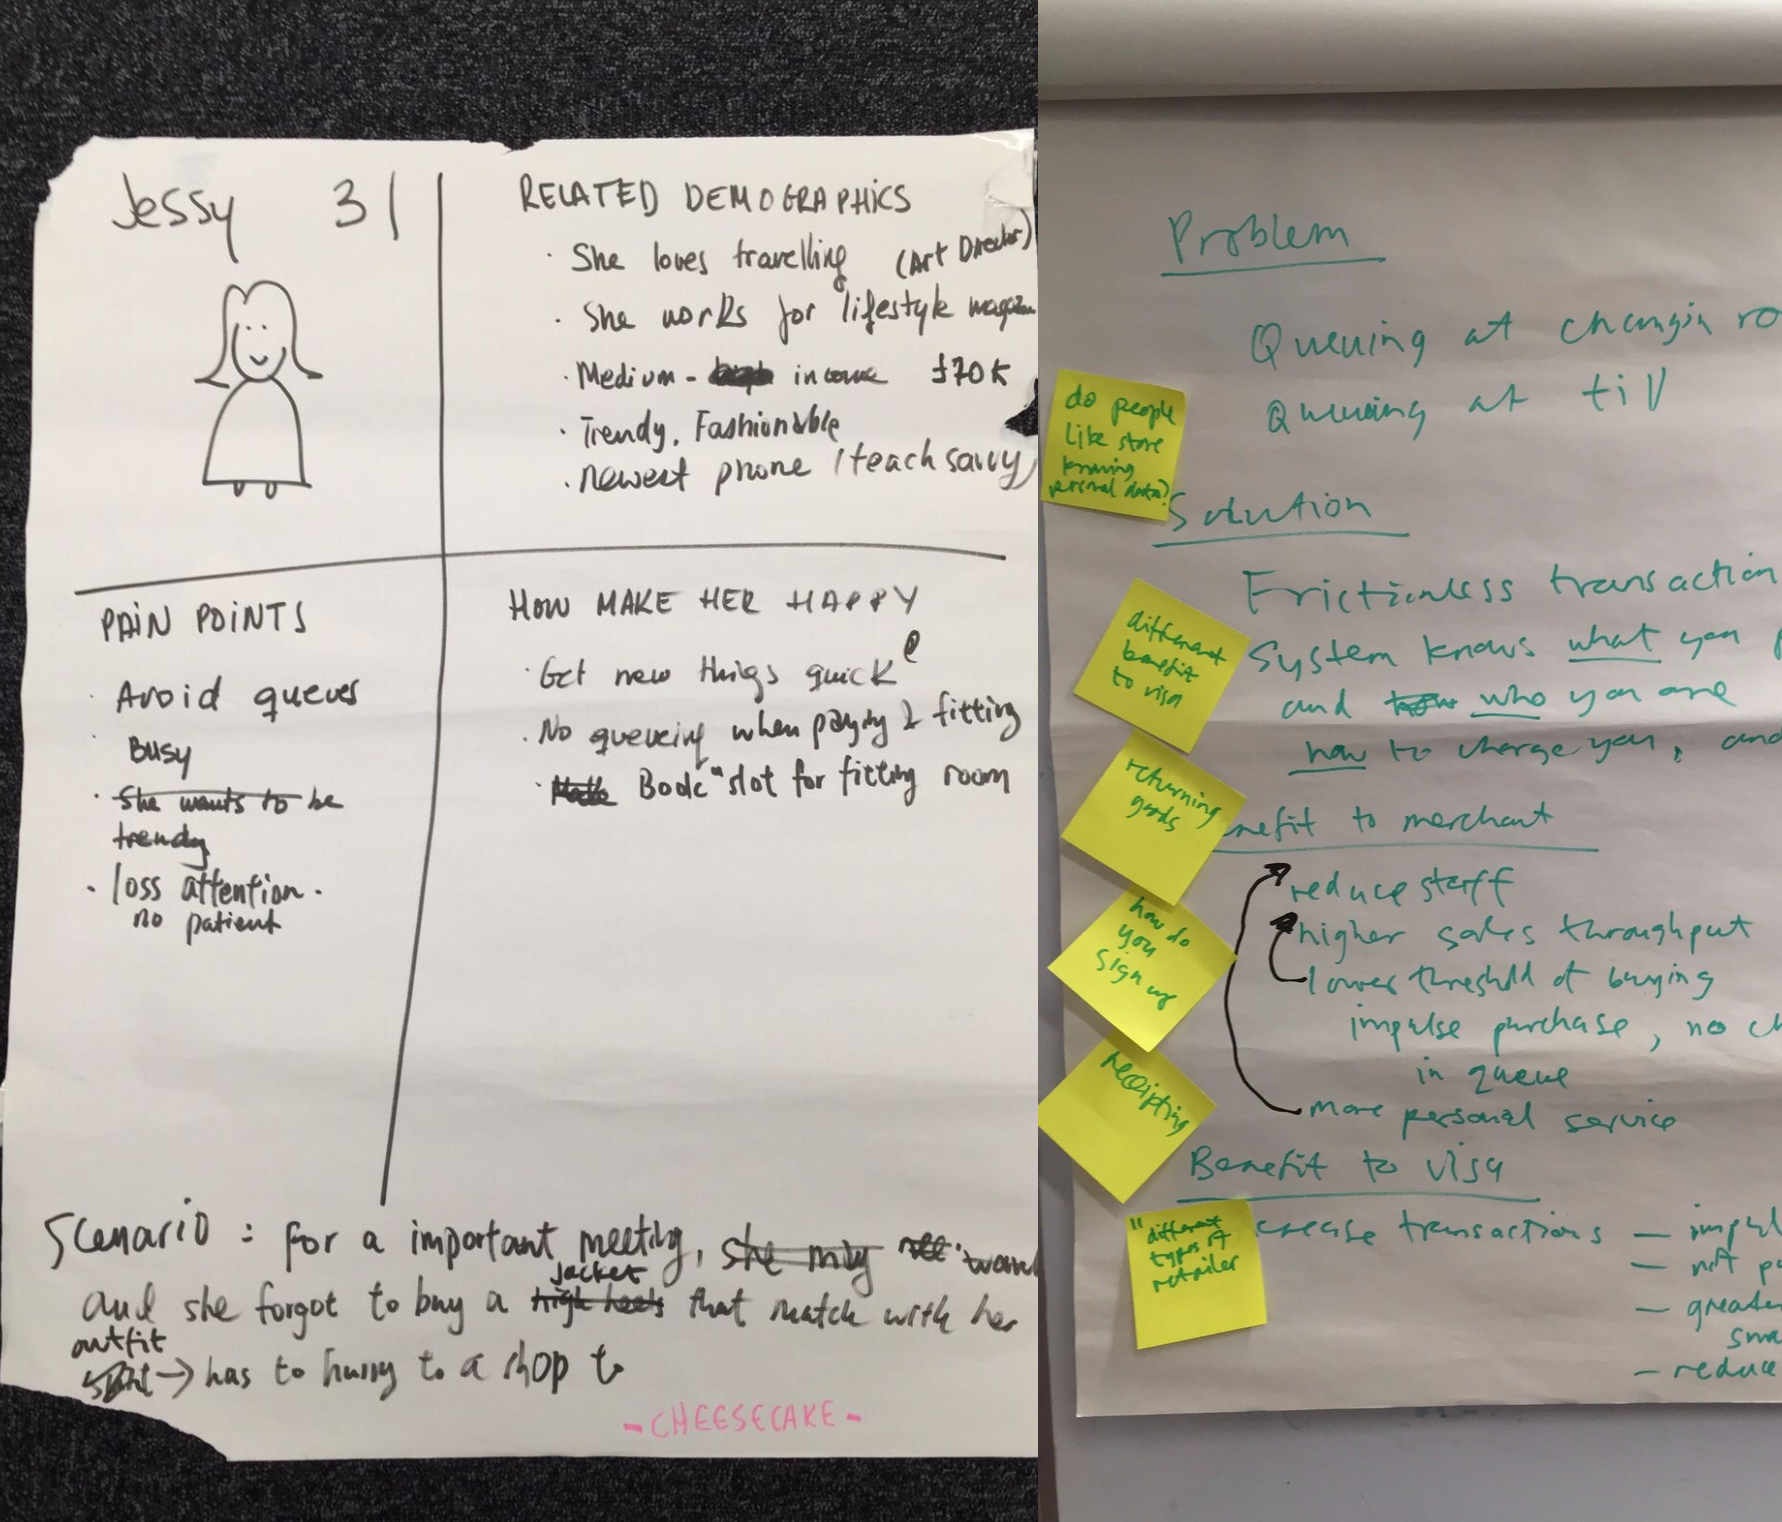 Jessy 31
RELATED DEMOGRAPHICS
· She loves travelling (Art Director)
· She works for lifestyle
· Medium - income £70K
· Trendy, Fashionable
· newest phone / teach savvy
PAIN POINTS
· Avoid queues
· Busy
· She wants to be
trendy
· loss attention.
no patient
HOW MAKE HER HAPPY
· Get new things quick
· No queueing when paying & fitting
· Book slot for fitting room
Scenario : for a important meeting, she may
jacket
and she forgot to buy a high heels that match with her
outfit
→ has to hurry to a shop to
- CHEESECAKE -
Problem
Queuing at changin ro
Queuing at till
do people
like store
knowing
personal data?
Solution
Frictionless transaction
System knows what you
and who you are
how to charge you, and
different
benefit
to visa
returning
goods
nefit to merchant
reduce staff
higher sales throughput
lower threshold of buying
impulse purchase, no ch
in queue
more personal service
how do
you
sign up
receipting
Benefit to visa
crease transactions — impul
— not p
— greater
sma
— reduce
"different
types of
retailer